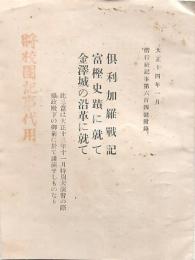 大正十四年一月
偕行社記事第六百四號附錄
倶利伽羅戰記
富樫史蹟に就て
金澤城の沿革に就て
此三篇は大正十三年十一月特別大演習の際
攝政殿下の御前に於て講演せしものなり
將校團記事代用